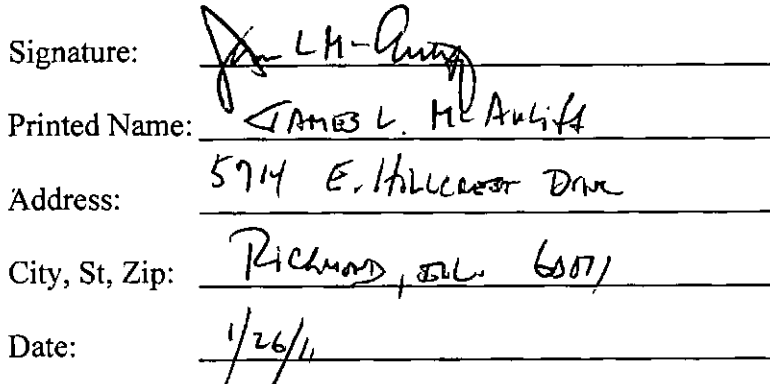 Signature:
Printed Name: JAMES L. McAuliff
Address: 5714 E. HILLCREST Drive
City, St, Zip: RICHMOND, ILL. 60071
Date: 1/26/11